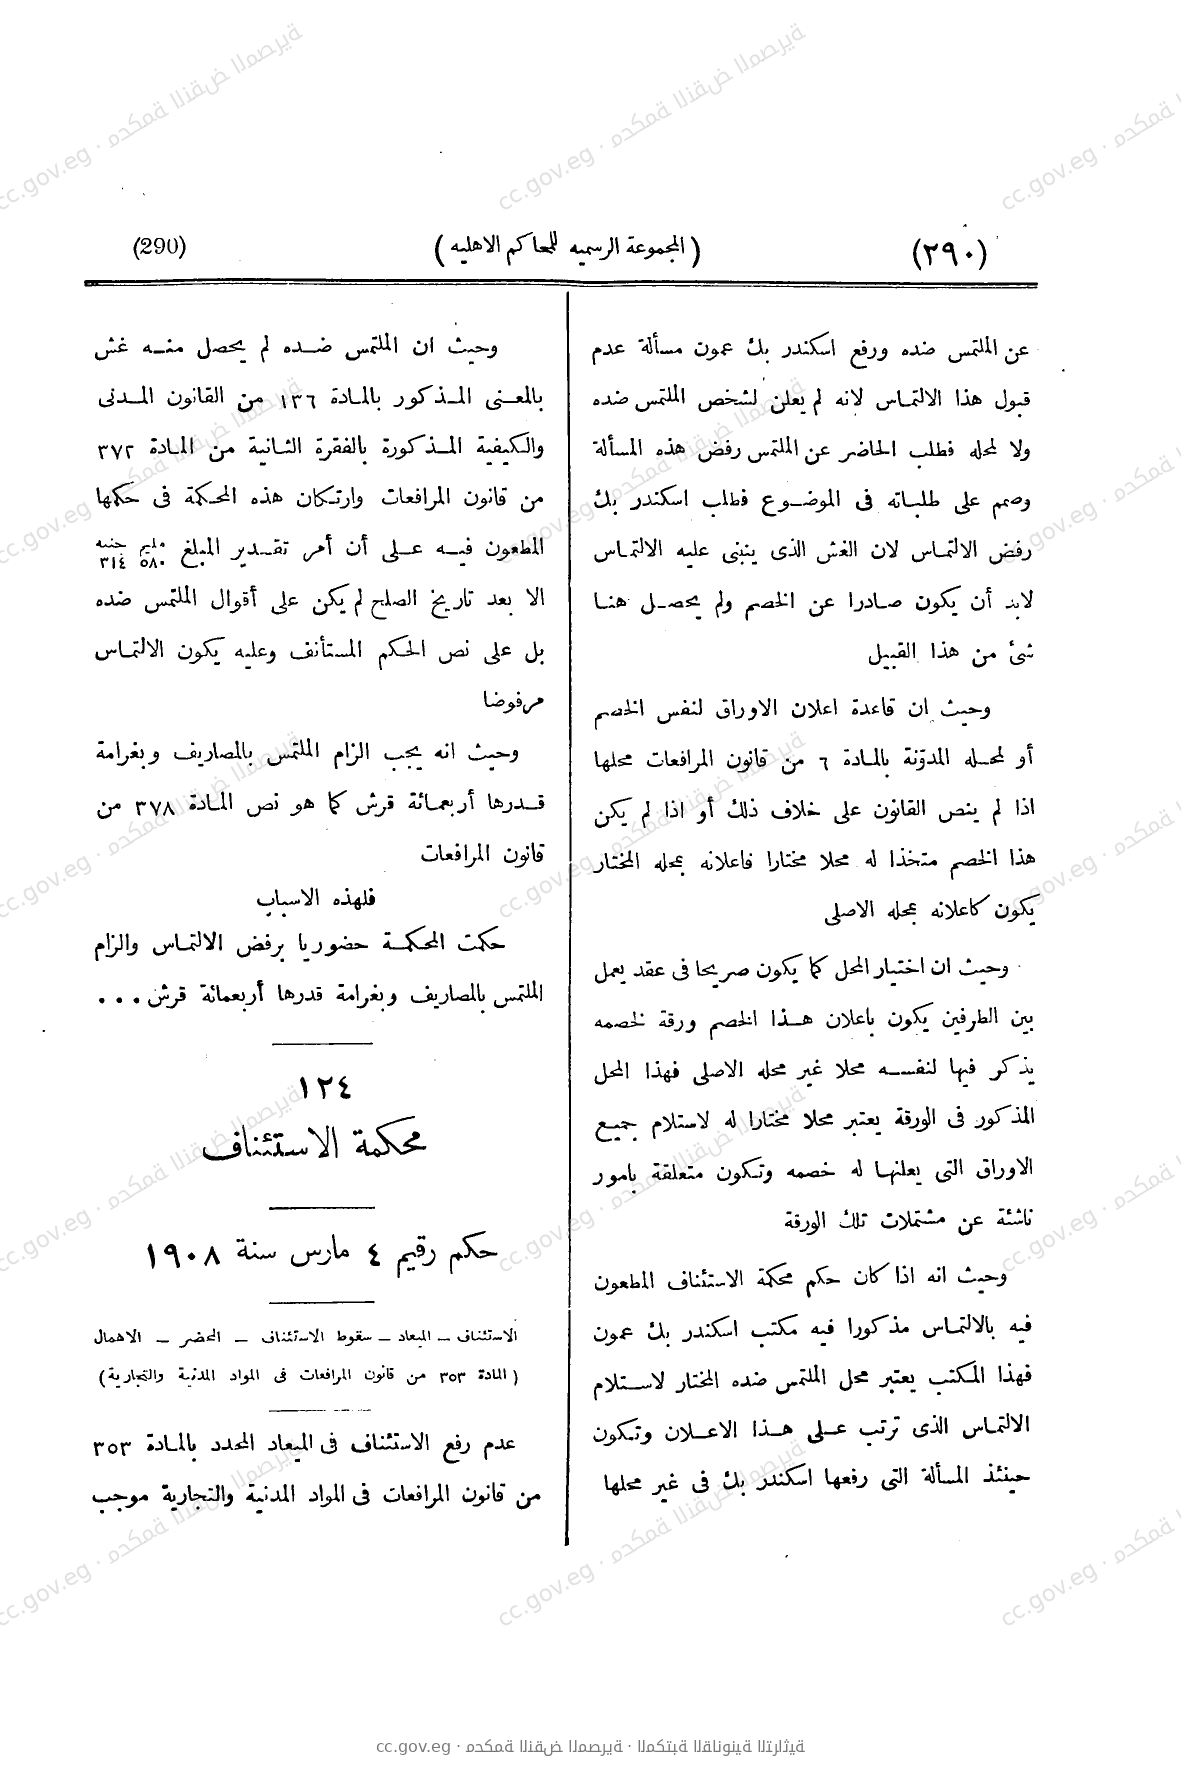 (٢٩٠)
( المجموعة الرسميه للمحاكم الاهليه )
(290)
عن الملتمس ضده ورفع اسكندر بك عمون مسألة عدم
قبول هذا الالتماس لانه لم يعلن لشخص الملتمس ضده
ولا لمحله فطلب الحاضر عن الملتمس رفض هذه المسألة
وصمم على طلباته فى الموضوع فطلب اسكندر بك
رفض الالتماس لان الغش الذى ينبنى عليه الالتماس
لابد أن يكون صادرا عن الخصم ولم يحصل هنا
شئ من هذا القبيل
وحيث ان قاعدة اعلان الاوراق لنفس الخصم
أو لمحله المدوّنة بالمادة ٦ من قانون المرافعات محلها
اذا لم ينص القانون على خلاف ذلك أو اذا لم يكن
هذا الخصم متخذا له محلا مختارا فاعلانه بمحله المختار
يكون كاعلانه بمحله الاصلى
وحيث ان اختيار المحل كما يكون صريحا فى عقد يعمل
بين الطرفين يكون باعلان هذا الخصم ورقة لخصمه
يذكر فيها لنفسه محلا غير محله الاصلى فهذا المحل
المذكور فى الورقة يعتبر محلا مختارا له لاستلام جميع
الاوراق التى يعلنها له خصمه وتكون متعلقة بامور
ناشئة عن مشتملات تلك الورقة
وحيث انه اذا كان حكم محكمة الاستئناف المطعون
فيه بالالتماس مذكورا فيه مكتب اسكندر بك عمون
فهذا المكتب يعتبر محل الملتمس ضده المختار لاستلام
الالتماس الذى ترتب على هذا الاعلان وتكون
حينئذ المسألة التى رفعها اسكندر بك فى غير محلها
وحيث ان الملتمس ضده لم يحصل منه غش
بالمعنى المذكور بالمادة ١٣٦ من القانون المدنى
والكيفية المذكورة بالفقرة الثانية من المادة ٣٧٢
من قانون المرافعات وارتكان هذه المحكمة فى حكمها
المطعون فيه على أن أمر تقدير المبلغ مليم ٥٨٠ جنيه ٣١٤
الا بعد تاريخ الصلح لم يكن على أقوال الملتمس ضده
بل على نص الحكم المستأنف وعليه يكون الالتماس
مرفوضا
وحيث انه يجب الزام الملتمس بالمصاريف وبغرامة
قدرها أربعمائة قرش كما هو نص المادة ٣٧٨ من
قانون المرافعات
فلهذه الاسباب
حكمت المحكمة حضوريا برفض الالتماس والزام
الملتمس بالمصاريف وبغرامة قدرها أربعمائة قرش ...
١٢٤
محكمة الاستئناف
حكم رقيم ٤ مارس سنة ١٩٠٨
الاستئناف – الميعاد – سقوط الاستئناف – المحضر – الاهمال
( المادة ٣٥٣ من قانون المرافعات فى المواد المدنية والتجارية )
عدم رفع الاستئناف فى الميعاد المحدد بالمادة ٣٥٣
من قانون المرافعات فى المواد المدنية والتجارية موجب
cc.gov.eg · محكمة النقض المصرية · المكتبة القانونية التراثية